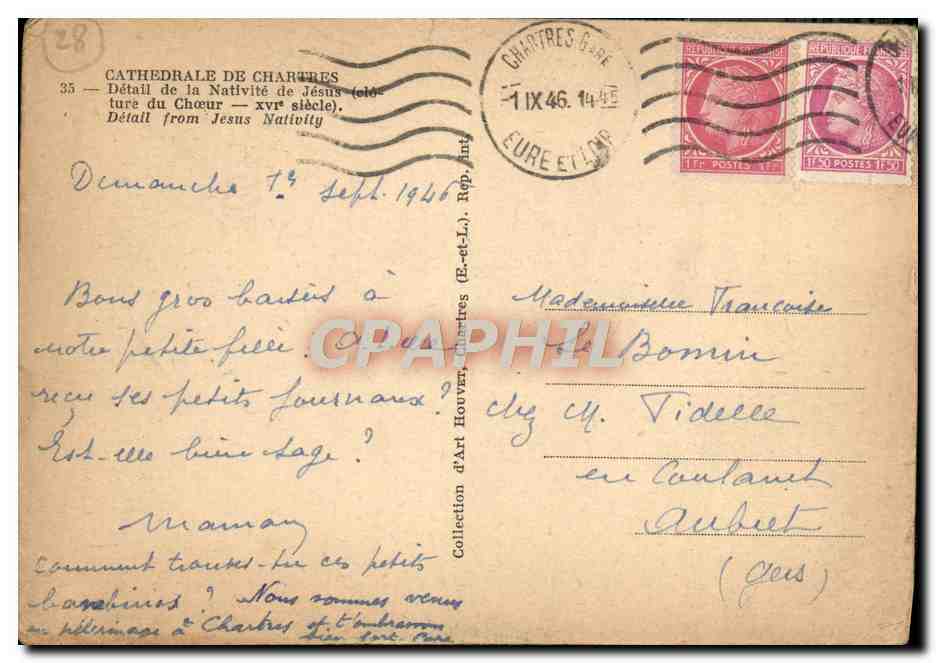 28
CATHEDRALE DE CHARTRES
35 — Détail de la Nativité de Jésus (clô-
ture du Chœur — XVIe siècle).
Détail from Jesus Nativity
CHARTRES GARE
1 IX 46. 14-45
EURE ET LOIR
REPUBLIQUE FRANÇAISE
1 Fr POSTES 1 Fr
REPUBLIQUE FRANÇAISE
1F50 POSTES 1F50
Dimanche 1er Sept. 1946
Bons gros baisers à
notre petite fille. A-t-elle
reçu ses petits journaux ?
Est-elle bien sage ?
Maman
Comment trouves-tu ces petits
bambinos ? Nous sommes venus
en pèlerinage à Chartres et t'embrassons
bien fort. Papa
Collection d'Art HOUVET, Chartres (E.-et-L.). Rep. int.
Mademoiselle Françoise
Le Bomin
chez M. Fidelle
en Coulanet
Aubiet
(Gers)
CPAPHIL